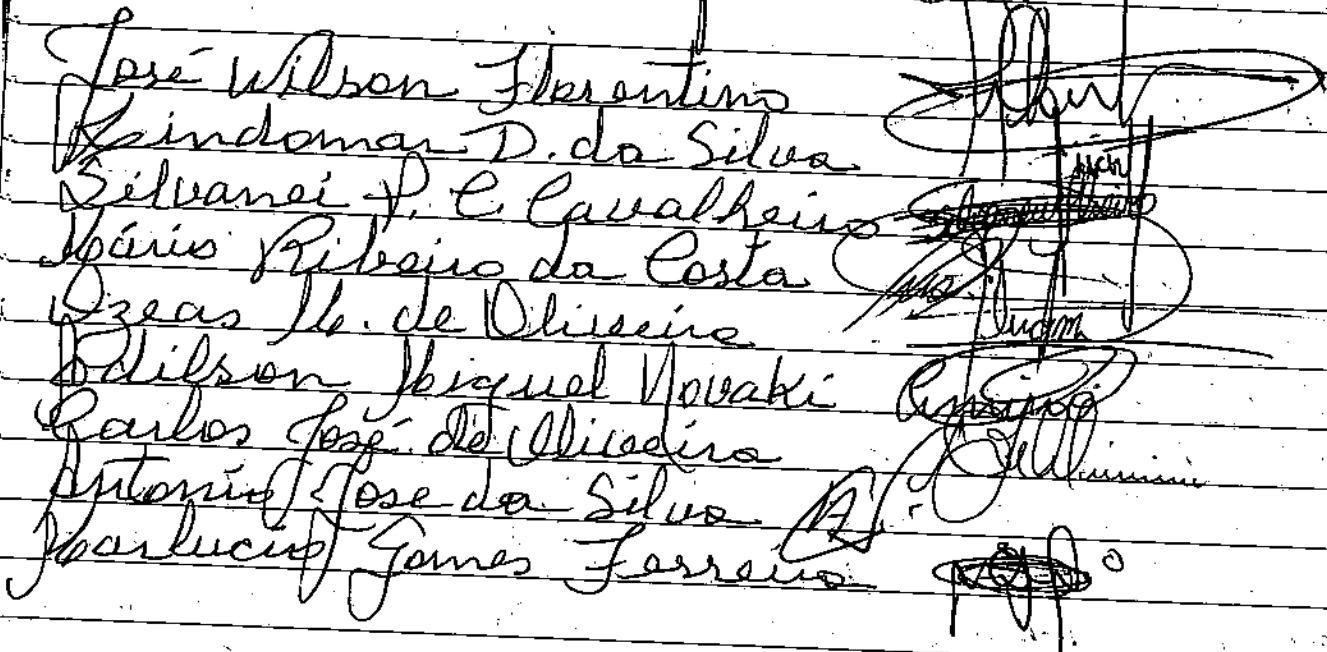 José Wilson Florentino
Lindomar D. da Silva
Silvanei P. C. Cavalheiro
Mário Ribeiro da Costa
Ozeas M. de Oliveira
Edilson Miguel Novaki
Carlos José de Oliveira
Antonio Jose da Silva
Marlucio Gomes Ferreira